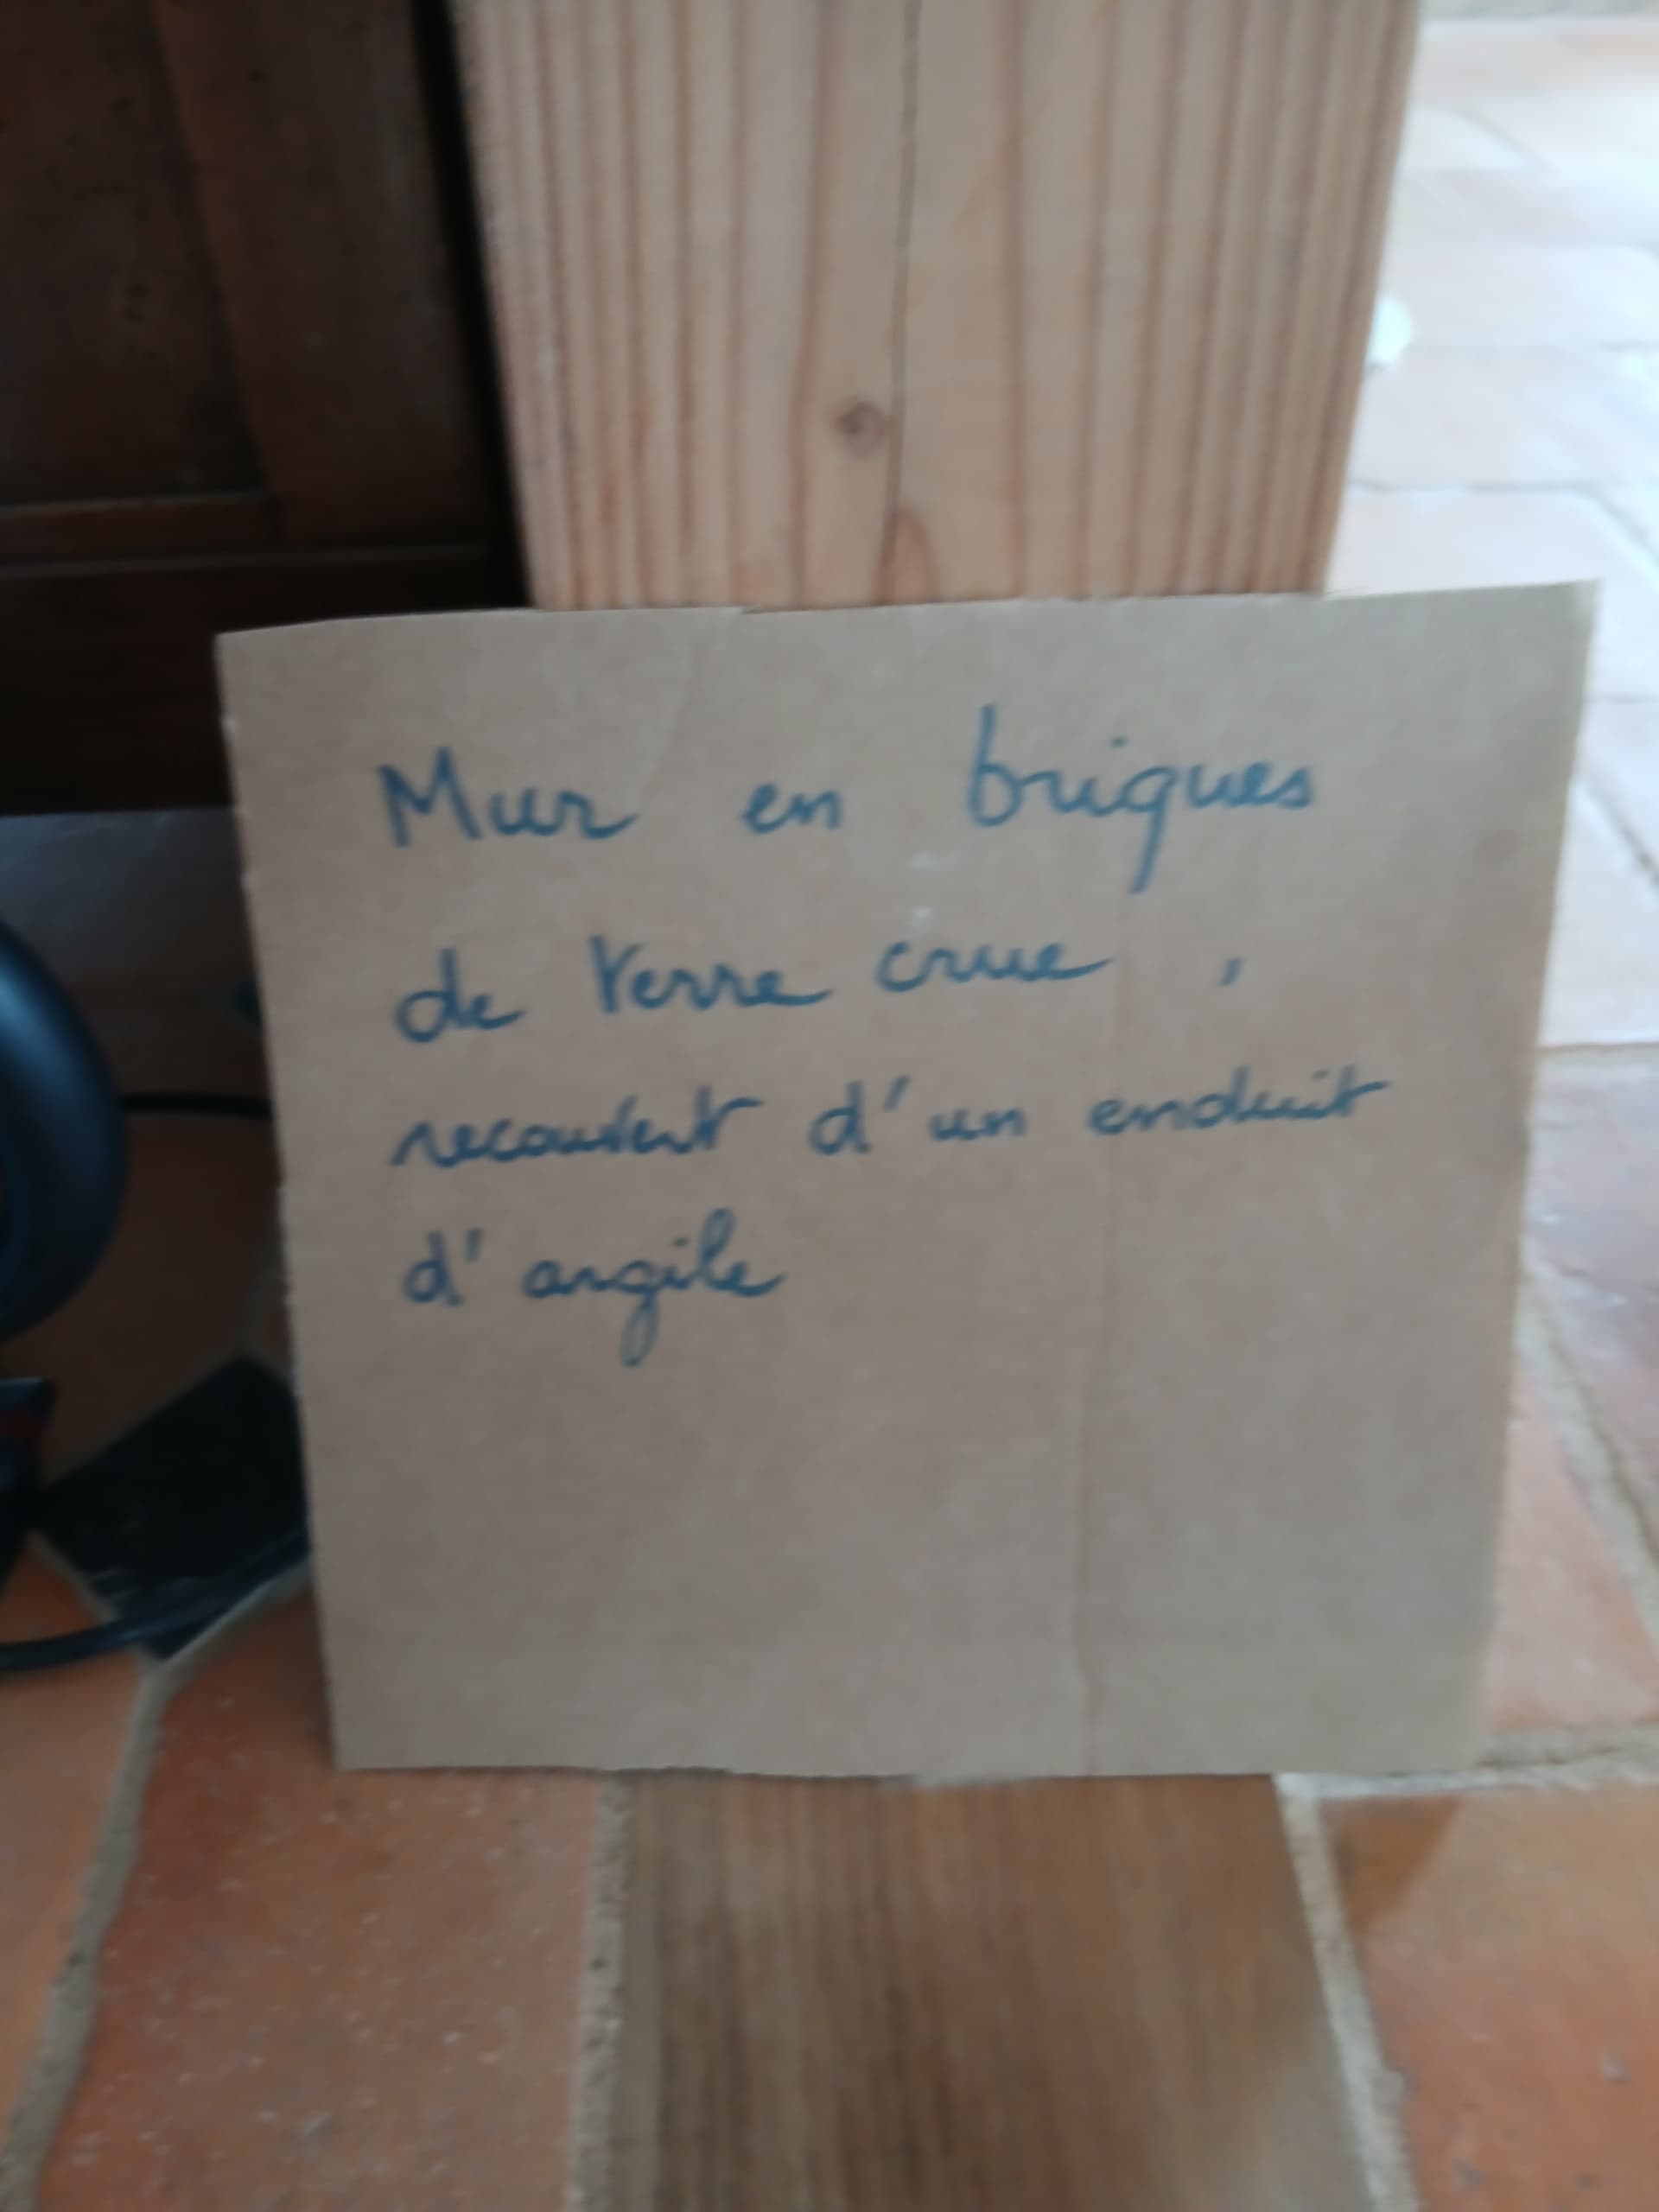 Mur en briques
de terre crue ,
recouvert d'un enduit
d'argile